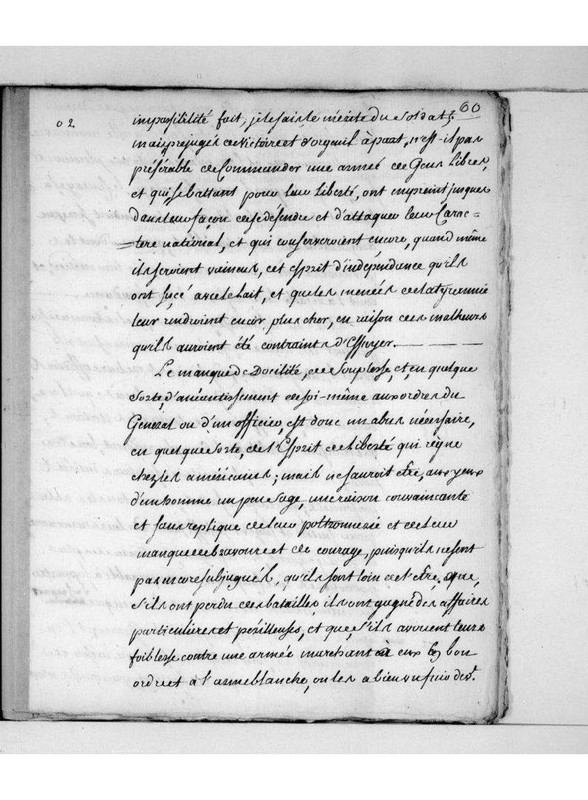 60
02
impassibilité fait, je le sais le mérite du soldat;
mais préjugés de victoire et d'orgueil à part, n'est-il pas
préférable de Commander une armée de Gens Libres,
et qui se battant pour leur Liberté, ont empreint jusques
dans leur façon de se défendre et d'attaquer leur Carac-
tère national, et qui conserveroient encore, quand même
ils seroient vaincus, cet esprit d'indépendance qu'ils
ont sucé avec le Lait, et que les menées de la tyrannie
leur rendroient encor plus cher, en raison des malheurs
qu'ils auroient été contraints d'Essuyer.
Le manque de Docilité, de Souplesse, et, en quelque
sorte, d'anéantissement de soi-même aux ordres du
General ou d'un officier, est donc un abus nécessaire,
en quelque sorte, de l'Esprit de Liberté qui règne
chez les américains; mais ne sauroit etre, aux yeux
d'un homme un peu sage, une raison convaincante
et sans replique de leur poltronnerie et de leur
manque de bravoure et de courage, puisqu'ils ne sont
pas encore subjugués, qu'ils sont loin de l'etre, que,
s'ils ont perdu des batailles, ils ont gagné des affaires
particulieres et périlleuses, et que, s'ils avouent leur
foiblesse contre une armée marchant à eux en bon
ordre et à l'arme blanche, on les a bien vu